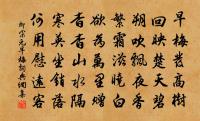 早梅發高樹
迴映楚天碧
朔吹飄夜香
繁霜滋曉白
欲為萬里贈
杳杳山水隔
寒英坐銷落
何用慰遠客
柳宗元早梅詩